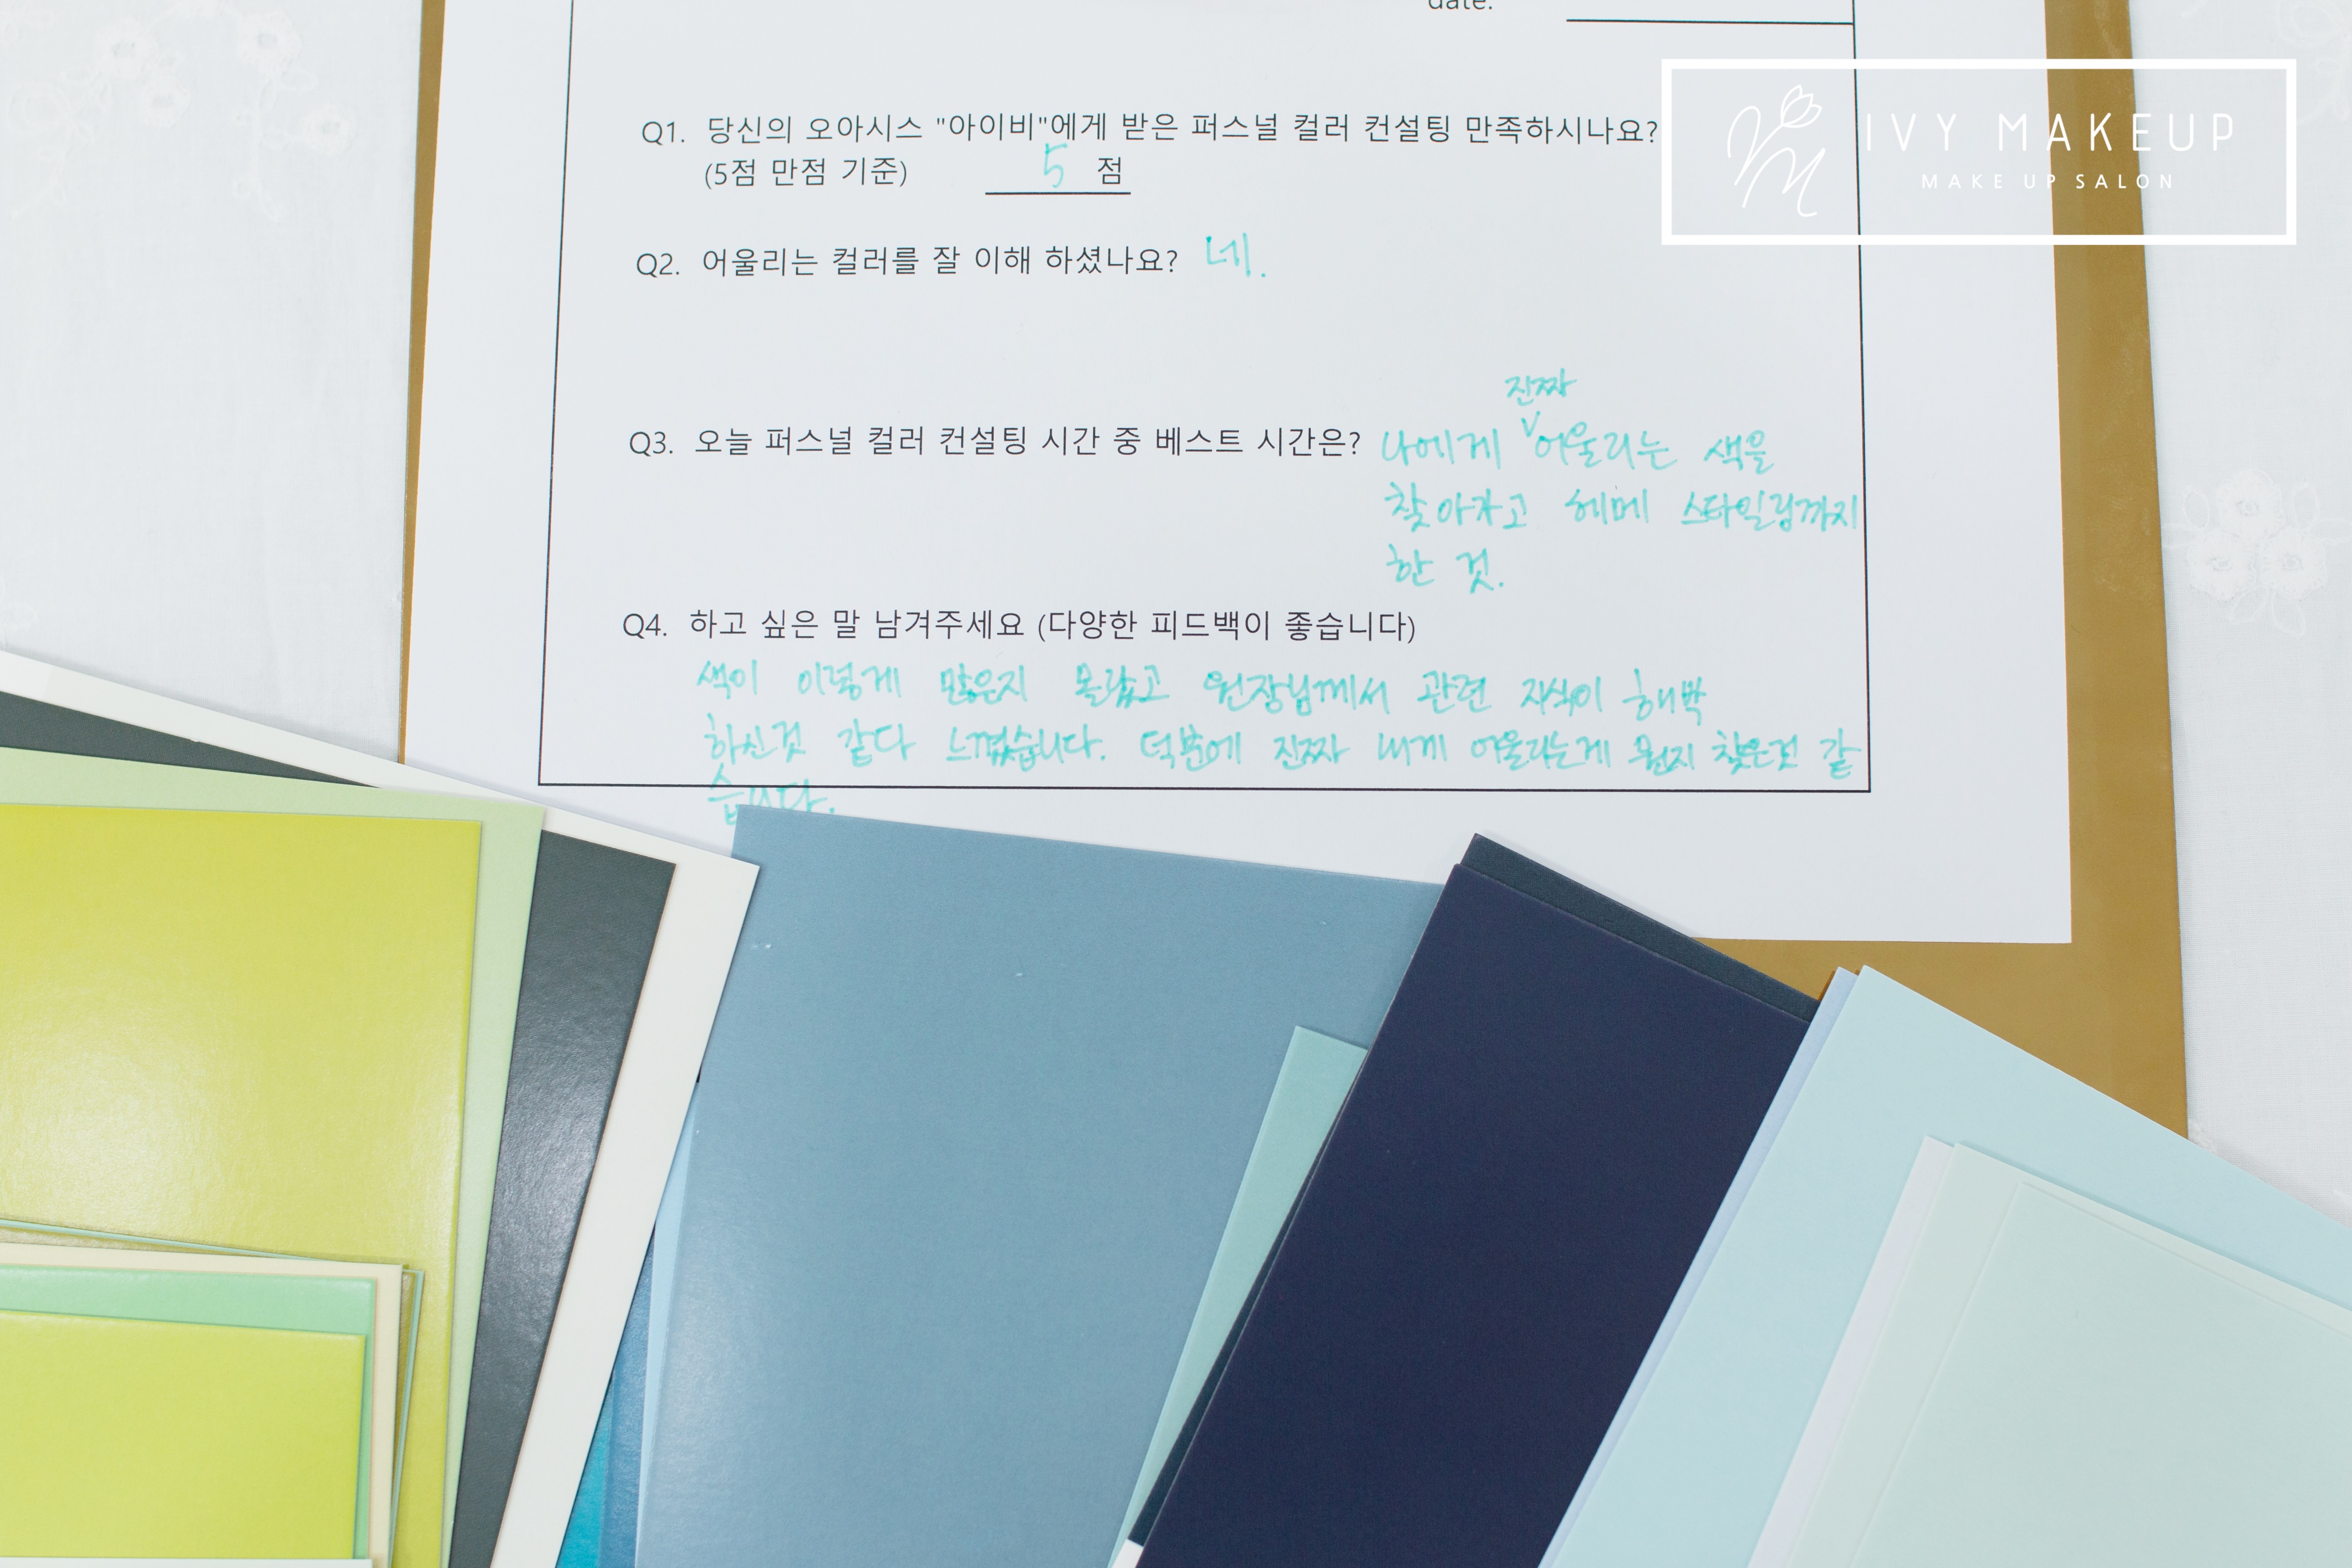 date:
IVY MAKEUP
MAKE UP SALON
Q1. 당신의 오아시스 "아이비"에게 받은 퍼스널 컬러 컨설팅 만족하시나요?
(5점 만점 기준) 5 점
Q2. 어울리는 컬러를 잘 이해 하셨나요? 네.
진짜
Q3. 오늘 퍼스널 컬러 컨설팅 시간 중 베스트 시간은? 나에게 ∨어울리는 색을
찾아가고 헤메 스타일링까지
한 것.
Q4. 하고 싶은 말 남겨주세요 (다양한 피드백이 좋습니다)
색이 이렇게 많은지 몰랐고 원장님께서 관련 지식이 해박
하신것 같다 느꼈습니다. 덕분에 진짜 내게 어울리는게 뭔지 찾은것 같
습니다.